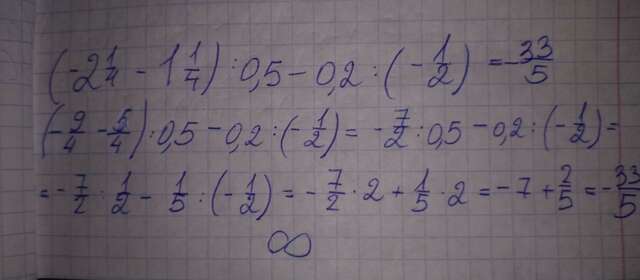 (-2 1/4 - 1 1/4) : 0,5 - 0,2 : (-1/2) = -33/5
(-9/4 - 5/4) : 0,5 - 0,2 : (-1/2) = -7/2 : 0,5 - 0,2 : (-1/2) =
= -7/2 : 1/2 - 1/5 : (-1/2) = -7/2 · 2 + 1/5 · 2 = -7 + 2/5 = -33/5
∞